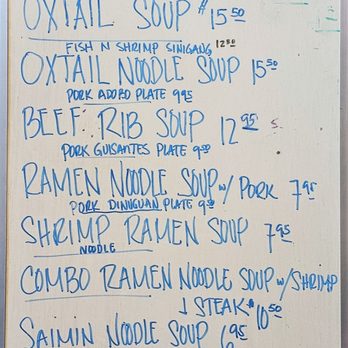 OXTAIL SOUP $15.50
FISH N SHRIMP SINIGANG 12.50
OXTAIL NOODLE SOUP 15.50
PORK ADOBO PLATE 9.95
BEEF RIB SOUP 12.95
PORK GUISANTES PLATE 9.50
RAMEN NOODLE SOUP w/ PORK 7.95
PORK DINUGUAN PLATE
SHRIMP RAMEN SOUP 7.95
NOODLE
COMBO RAMEN NOODLE SOUP w/ SHRIMP
STEAK $10.50
SAIMIN NOODLE SOUP 6.95